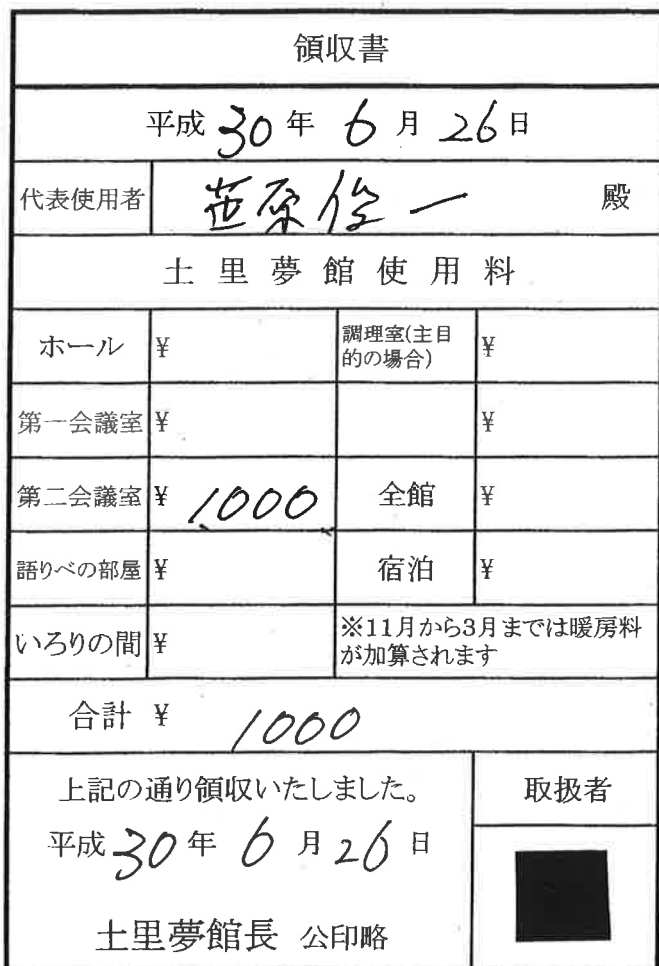 領収書
平成 30 年 6 月 26 日
代表使用者 笹原俊一 殿
土里夢館使用料
ホール ¥ 調理室(主目的の場合) ¥
第一会議室 ¥ ¥
第二会議室 ¥ 1000 全館 ¥
語りべの部屋 ¥ 宿泊 ¥
いろりの間 ¥ ※11月から3月までは暖房料が加算されます
合計 ¥ 1000
上記の通り領収いたしました。 取扱者
平成 30 年 6 月 26 日
土里夢館長 公印略